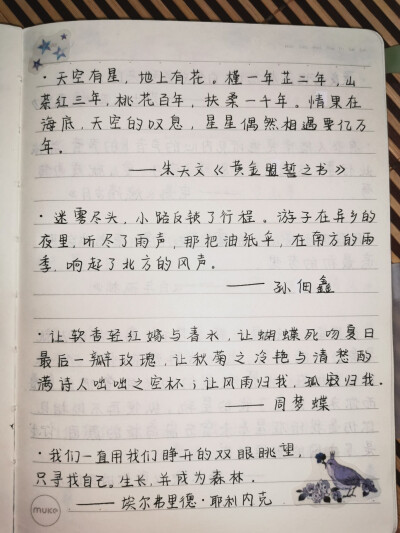 ·天空有星，地上有花。槿一年芷二年，山
茶红三年，桃花百年，扶柔一千年。情果在
海底，天空的叹息，星星偶然相遇要亿万
年。
——朱天文《黄金盟誓之书》
·迷雾尽头，小路反锁了行程。游子在异乡的
夜里，听尽了雨声，那把油纸伞，在南方的雨
季，响起了北方的风声。
——孙佃鑫
·让软香轻红嫁与春水，让蝴蝶死吻夏日
最后一瓣玫瑰，让秋菊之冷艳与清愁酌
满诗人咄咄之空杯；让风雨归我，孤寂归我。
——周梦蝶
·我们一直用我们睁开的双眼眺望，
只寻找自己。生长，并成为森林。
——埃尔弗里德·耶利内克
muke